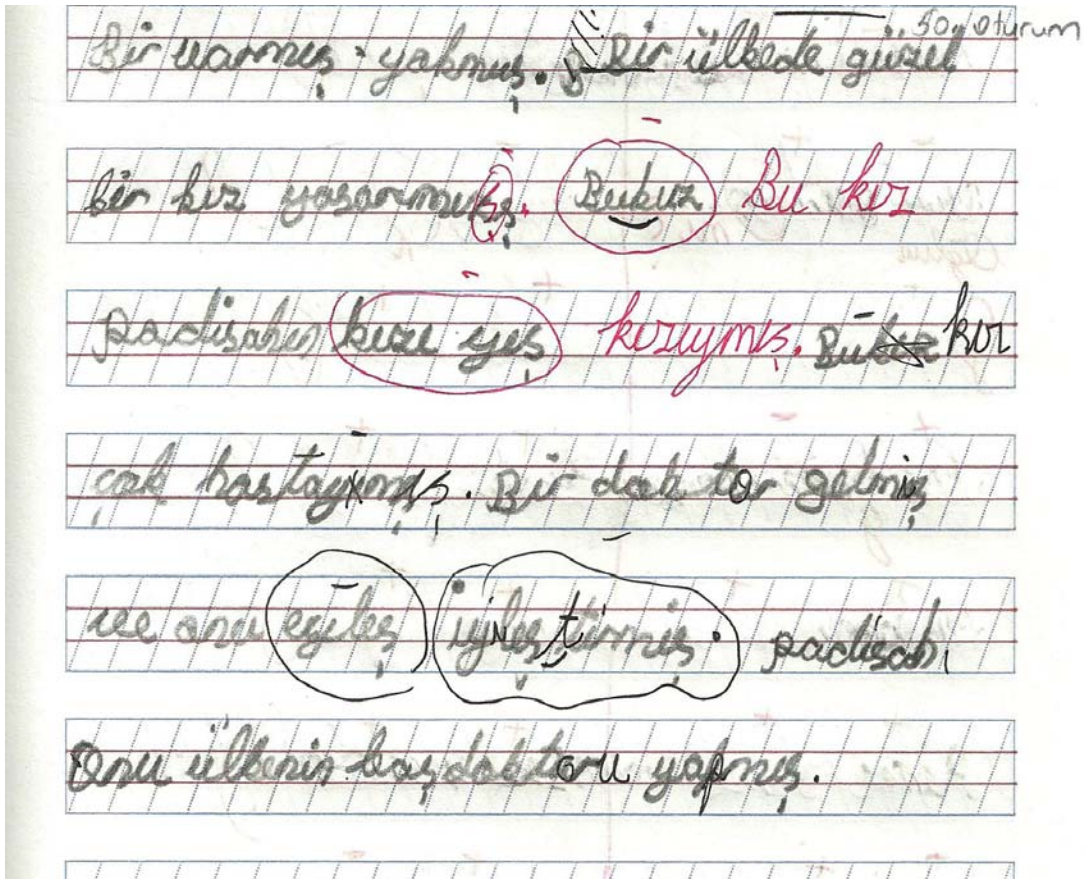 50. oturum
Bir varmış yokmuş. Bir ülkede güzel
bir kız yaşarmış. Bukız Bu kız
padişahın kızı yış kızıymış. Bu kız
çok hastaymış. Bir doktor gelmiş
ve onu eyileş iyileştirmiş. padişah,
Onu ülkenin başdoktoru yapmış.